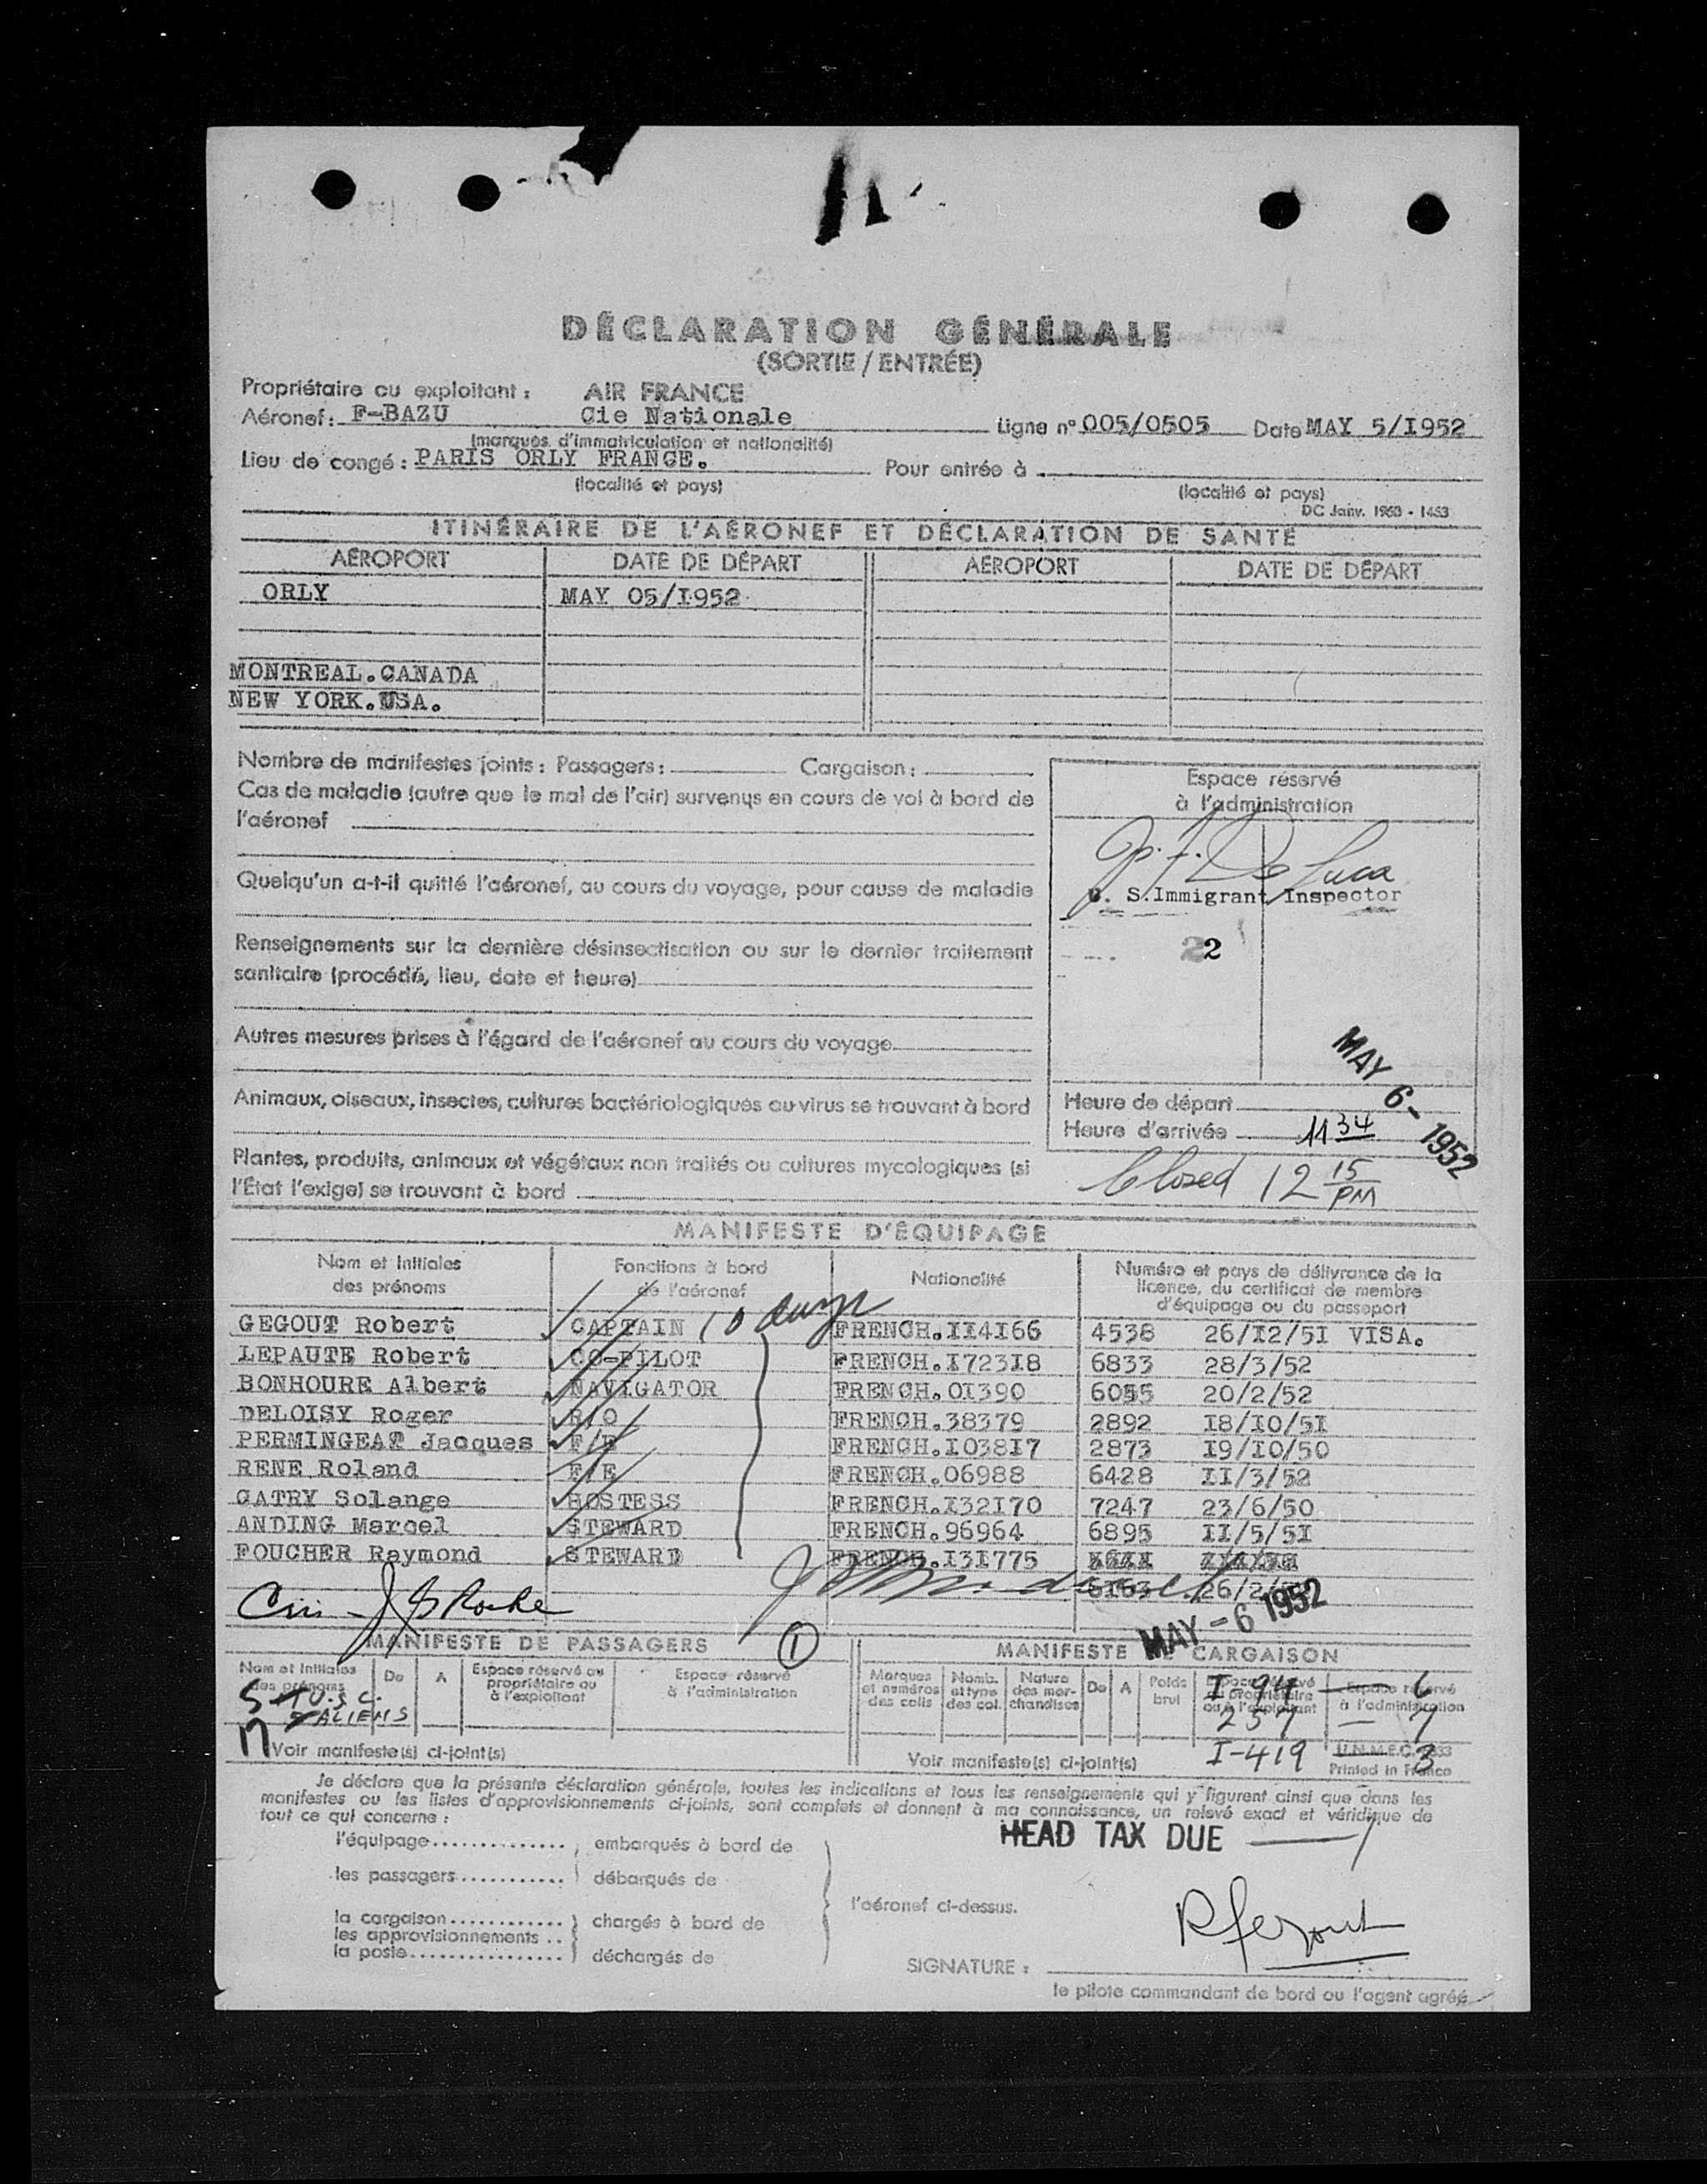 DÉCLARATION GÉNÉRALE
(SORTIE / ENTRÉE)
Propriétaire ou exploitant : AIR FRANCE
Aéronef : F-BAZU Cie Nationale Ligne n° 005/0505 Date MAY 5/I952
(marques d'immatriculation et nationalité)
Lieu de congé : PARIS ORLY FRANCE. Pour entrée à
(localité et pays) (localité et pays)
DC Janv. 1950 - 1453
ITINÉRAIRE DE L'AÉRONEF ET DÉCLARATION DE SANTÉ
AÉROPORT DATE DE DÉPART AÉROPORT DATE DE DÉPART
ORLY MAY 05/I952
MONTREAL.CANADA
NEW YORK.USA.
Nombre de manifestes joints : Passagers : Cargaison :
Cas de maladie (autre que le mal de l'air) survenus en cours de vol à bord de
l'aéronef
Quelqu'un a-t-il quitté l'aéronef, au cours du voyage, pour cause de maladie
Renseignements sur la dernière désinsectisation ou sur le dernier traitement
sanitaire (procédé, lieu, date et heure)
Autres mesures prises à l'égard de l'aéronef au cours du voyage
Animaux, oiseaux, insectes, cultures bactériologiques ou virus se trouvant à bord
Plantes, produits, animaux et végétaux non traités ou cultures mycologiques (si
l'État l'exige) se trouvant à bord
Espace réservé
à l'administration
De Luca
S.Immigrant Inspector
22
MAY 6- 1952
Heure de départ
Heure d'arrivée 11 34
Closed 12 15 PM
MANIFESTE D'ÉQUIPAGE
Nom et Initiales des prénoms Fonctions à bord de l'aéronef Nationalité Numéro et pays de délivrance de la licence, du certificat de membre d'équipage ou du passeport
10 days
GEGOUT Robert CAPTAIN FRENCH.II4I66 4538 26/I2/5I VISA.
LEPAUTE Robert CO-PILOT FRENCH.I723I8 6833 28/3/52
BONHOURE Albert NAVIGATOR FRENCH.0I390 6055 20/2/52
DELOISY Roger R/O FRENCH.38379 2892 I8/I0/5I
PERMINGEAT Jacques F/E FRENCH.I038I7 2873 I9/I0/50
RENE Roland F/E FRENCH.06988 6428 II/3/52
CATRY Solange HOSTESS FRENCH.I32I70 7247 23/6/50
ANDING Marcel STEWARD FRENCH.96964 6895 II/5/5I
FOUCHER Raymond STEWARD FRENCH.I3I775
26/2/
MAY -6 1952
MANIFESTE DE PASSAGERS 1 MANIFESTE CARGAISON
Nom et Initiales des prénoms De A Espace réservé au propriétaire ou à l'exploitant Espace réservé à l'administration
Marques et numéros des colis Nomb. et type des col. Nature des marchandises De A Poids brut Espace réservé au propriétaire ou à l'exploitant Espace réservé à l'administration
U.S.C.
ALIENS
I-94 — 6
257 — 7
I-419 3
Voir manifeste(s) ci-joint(s) Voir manifeste(s) ci-joint(s)
Printed in France
Je déclare que la présente déclaration générale, toutes les indications et tous les renseignements qui y figurent ainsi que dans les
manifestes ou les listes d'approvisionnements ci-joints, sont complets et donnent à ma connaissance, un relevé exact et véridique de
tout ce qui concerne :
HEAD TAX DUE
l'équipage embarqués à bord de
les passagers débarqués de
l'aéronef ci-dessus.
la cargaison chargés à bord de
les approvisionnements
la poste déchargés de
R Gegout
SIGNATURE :
le pilote commandant de bord ou l'agent agréé